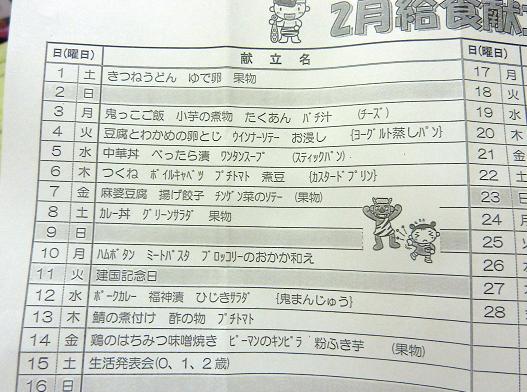 2月給食献
日(曜日) 献立名 日(曜日)
1 土 きつねうどん ゆで卵 果物 17 月
2 日 18 火
3 月 鬼っこご飯 小芋の煮物 たくあん バチ汁 (チーズ) 19 水
4 火 豆腐とわかめの卵とじ ウインナーソテー お浸し {ヨーグルト蒸しパン} 20 木
5 水 中華丼 べったら漬 ワンタンスープ (スティックパン) 21 金
6 木 つくね ボイルキャベツ プチトマト 煮豆 {カスタードプリン} 22 土
7 金 麻婆豆腐 揚げ餃子 チンゲン菜のソテー (果物) 23 日
8 土 カレー丼 グリーンサラダ 果物 24 月
9 日 25 火
10 月 ハムボタン ミートパスタ ブロッコリーのおかか和え 26 水
11 火 建国記念日 27 木
12 水 ポークカレー 福神漬 ひじきサラダ {鬼まんじゅう} 28 金
13 木 鯖の煮付け 酢の物 プチトマト
14 金 鶏のはちみつ味噌焼き ピーマンのキンピラ 粉ふき芋 (果物)
15 土 生活発表会(0、1、2歳)
16 日